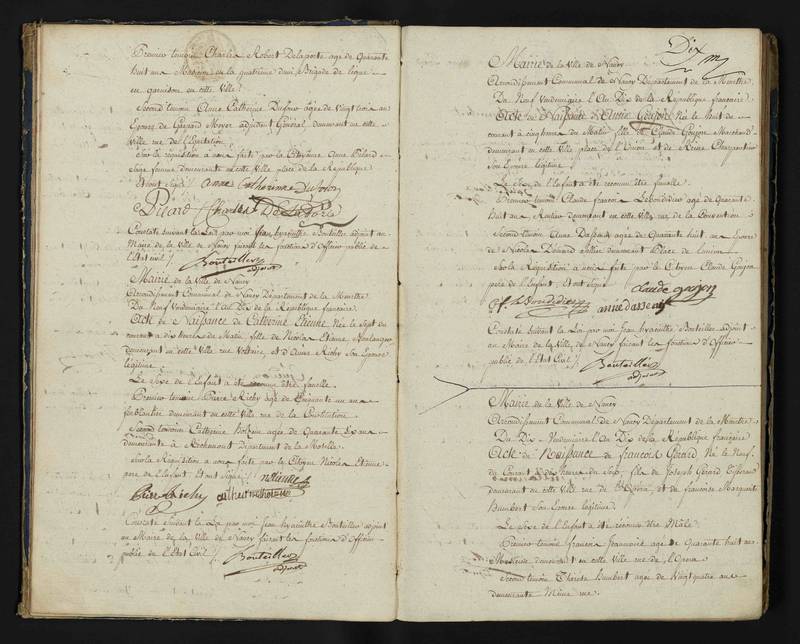 Premier temoin Charles Robert Delaporte agé de Quarante
huit ans en la quatrieme demi Brigade de
en garnison en cette Ville
Second temoin Anne Catherine Dufour agée de vingt trois ans
Epouse de Gaspard Meyer adjudant Général demeurant en cette
Ville rue de
Sur la requisition a nous faite par la Citoyenne Anne Picard
Sage femme demeurante en cette Ville place de la Republique
Et ont signé / anne Catherinne Dufour
Picard Charles De La Porte
Constaté suivant la Loi par moi Jean hyacinthe Bouteiller adjoint au
Maire de la Ville de Nancy faisant les fonctions d'officier public de
l'Etat civil /
Bouteiller
adjoint
Mairie de la Ville de Nancy
Arrondissement Communal de Nancy Département de la Meurthe
Du Neuf Vendemiaire l'An Dix de la Republique francaise
Acte de Naissance de Catherine Etienne Née le Sept du
courant a dix heures du Matin, fille de Nicolas Etienne Boulanger
demeurant en cette Ville rue Voltaire, et d'Anne Richy Son Epouse
légitime
Le Sexe de l'Enfant a été reconnu être femelle.
Premier temoin Pierre Richy agé de Cinquante un ans
ferblantier demeurant en cette Ville rue de la Constitution
Second temoin Catherine agée de Quarante ans
demeurante à Département de la Moselle
Sur la Requisition a nous faite par le Citoyen Nicolas Etienne
pere de l'Enfant, Et ont Signé / n etienne
Pierre Richy
Constaté suivant la Loi par moi Jean hyacinthe Bouteiller adjoint
au Maire de la Ville de Nancy faisant les fonctions d'Officier
public de l'Etat Civil /
Bouteiller
adjoint
Dix
Mairie de la Ville de Nancy
Arrondissement Communal de Nancy Département de la Meurthe
Du Neuf Vendemiaire l'An Dix de la Republique francaise
Acte de Naissance de Goujon Née le huit du
courant a cinq heures du Matin fille de Claude Goujon Marchand
demeurant en cette Ville place de l'Union et de Reine Charpentier
Son Epouse légitime
Le Sexe de l'Enfant a été reconnu être femelle.
Premier temoin Claude francois agé de Quarante
huit ans demeurant en cette Ville rue de la Convention
Second temoin Anne agée de Quarante huit ans Epouse
de Nicolas demeurant Place de l'union
Sur la Requisition a nous faite par le Citoyen Claude Goujon
pere de l'Enfant, Et ont Signé
claude goujon
Constaté Suivant la Loi par moi Jean hyacinthe Bouteiller adjoint
au Maire de la Ville de Nancy faisant les fonctions d'Officier
public de l'Etat Civil /
Bouteiller
adjoint
Mairie de la Ville de Nancy
Arrondissement Communal de Nancy Département de la Meurthe
Du Dix Vendemiaire l'An Dix de la Republique francaise
Acte de Naissance de francois Gerard Né le Neuf
du Courant a heures du Soir, fils de Joseph Gerard
demeurant en cette Ville rue de l'Opera, et de francoise Marguerite
Humbert Son Epouse légitime.
Le Sexe de l'Enfant a été reconnu être Mâle.
Premier temoin francois agé de Quarante huit ans
demeurant en cette Ville rue de l'Opera
Second temoin Therese Humbert agée de Vingt quatre ans
demeurante Même rue.